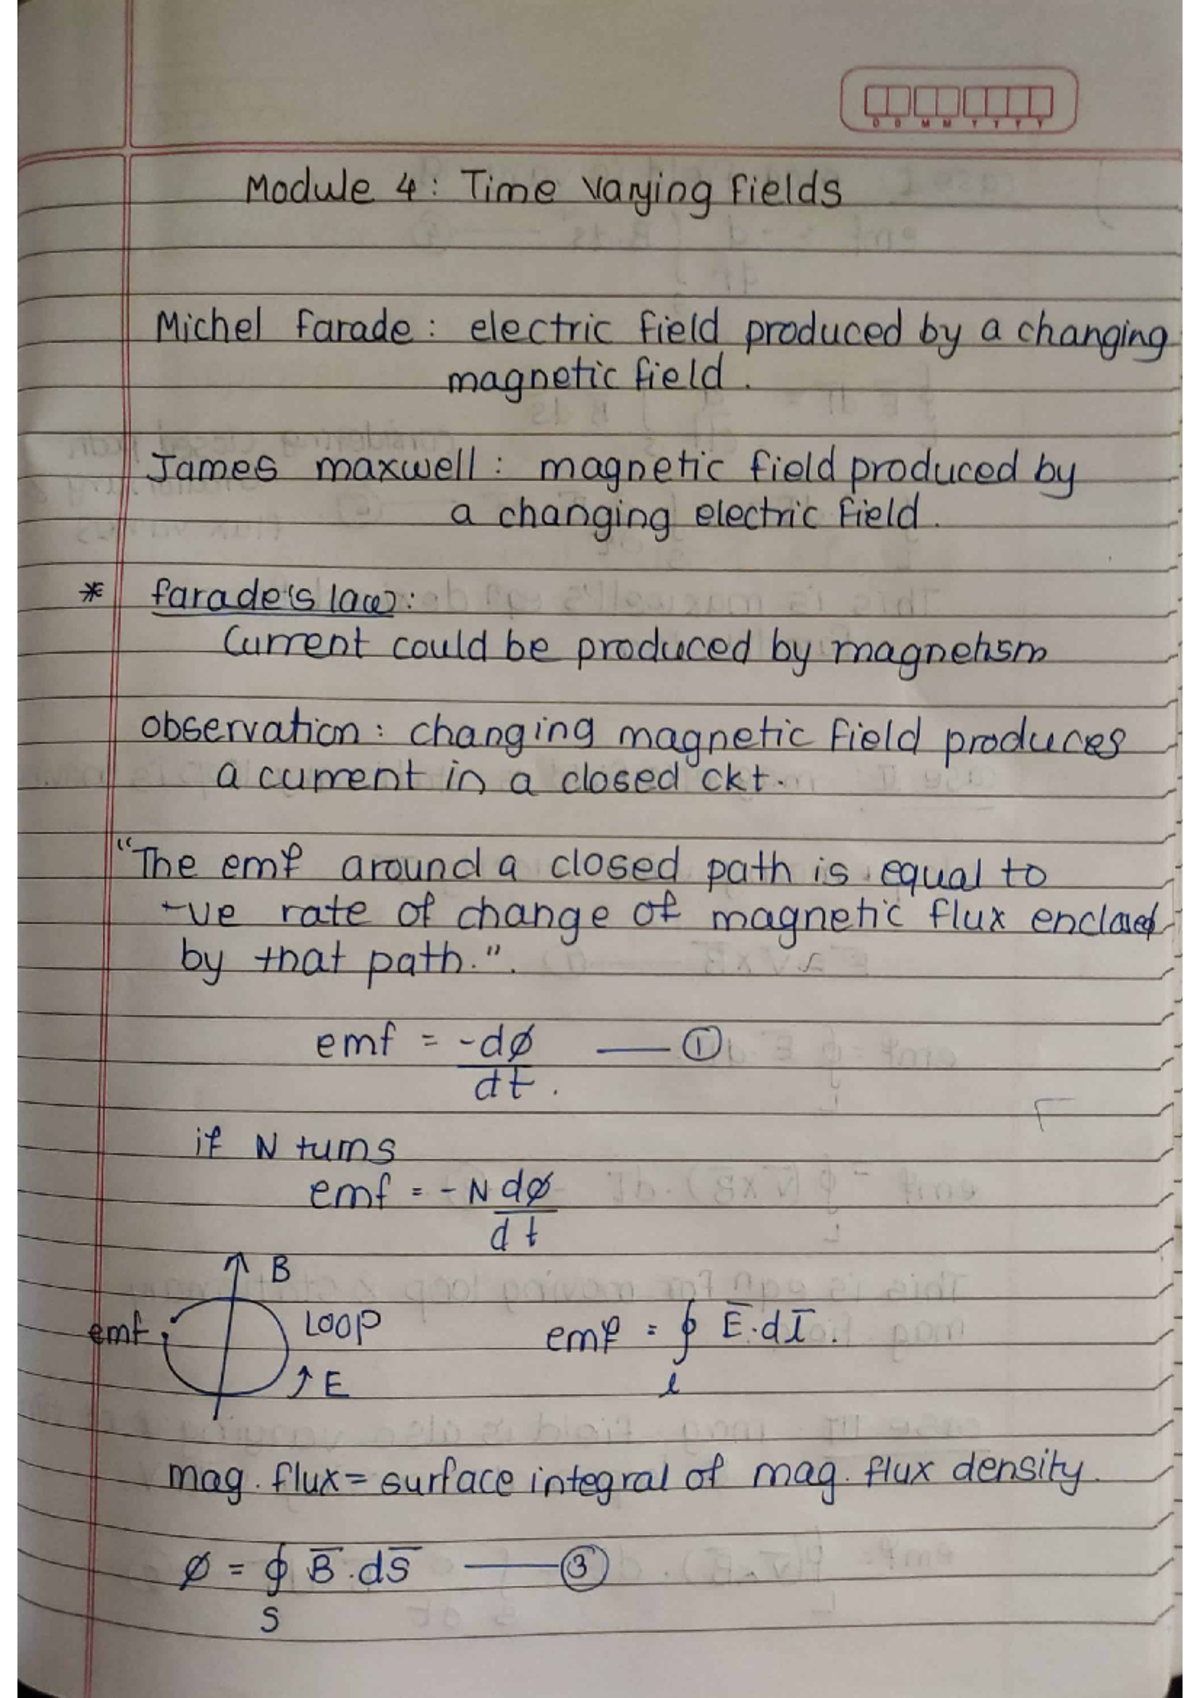 D D M M Y Y Y Y
Module 4: Time Varying fields
Michel farade: electric field produced by a changing
magnetic field.
James maxwell: magnetic field produced by
a changing electric field.
* farade's law:
Current could be produced by magnetism
observation: changing magnetic field produces
a current in a closed ckt.
"The emf around a closed path is equal to
-ve rate of change of magnetic flux enclosed
by that path.".
emf = -dø —— ①
dt.
if N turns
emf = -N dø
dt
B
emf LOOP emf = ∮ E̅.dl̅.
E l
mag. flux = surface integral of mag. flux density.
ø = ∮ B̅.dS̅ —— ③
S